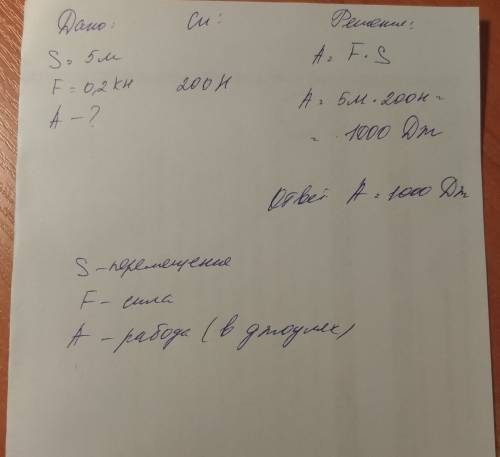 Дано: Си: Решение:
S = 5м A = F · S
F = 0,2 кН 200Н A = 5м · 200н =
A - ? = 1000 Дж
Ответ A = 1000 Дж
S - перемещение
F - сила
A - работа (в джоулях)